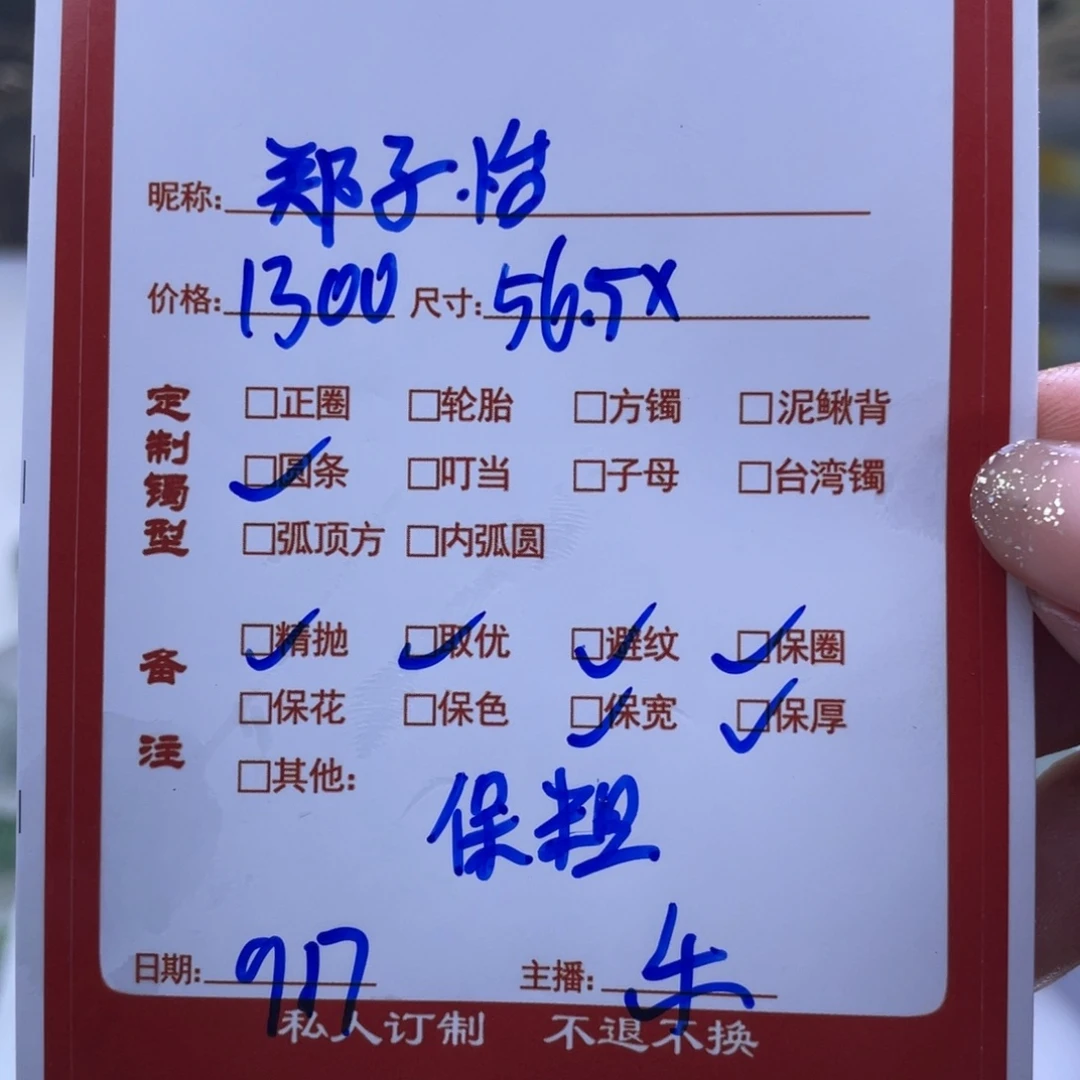 昵称: 郑子怡
价格: 1300 尺寸: 56.5X
定制镯型
□正圈 □轮胎 □方镯 □泥鳅背
☑圆条 □叮当 □子母 □台湾镯
□弧顶方 □内弧圆
备注
☑精抛 ☑取优 ☑避纹 ☑保圈
□保花 □保色 ☑保宽 ☑保厚
□其他: 保粗
日期: 9.17 主播: 牛
私人订制 不退不换